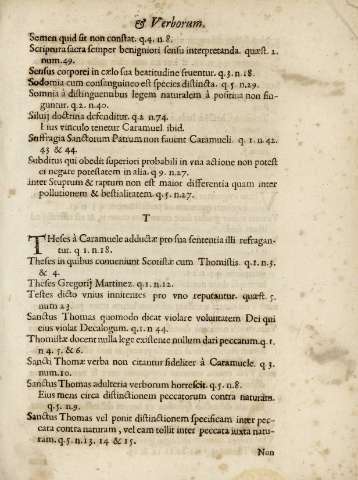 & Verborum.
Semen quid sit non constat. q.4. n.8.
Scriptura sacra semper benigniori sensu interpretanda. quæst. 2.
num.49.
Sensus corporei in cælo sua beatitudine fruentur. q.3. n.18.
Sodomia cum consanguineo est species distincta. q.5 n.29.
Somnia à distinguentibus legem naturalem à positiua non fin-
guntur. q.2. n.40.
Siluij doctrina defenditur. q.2 n.74.
Eius vinculo tenetur Caramuel. ibid.
Suffragia Sanctorum Patrum non fauent Caramueli. q.1. n.42.
43 & 44.
Subditus qui obedit superiori probabili in vna actione non potest
ei negare potestatem in alia. q.9. n.27.
Inter Stuprum & raptum non est maior differentia quam inter
pollutionem & bestialitatem. q.5. n.27.
T
THeses à Caramuele adductæ pro sua sententia illi refragan-
tur. q 1. n.18.
Theses in quibus conueniunt Scotistæ cum Thomistis. q.1. n.3.
& 4.
Theses Gregorij Martinez. q.1. n.12.
Testes dicto vnius innitentes pro vno reputantur. quæst. 5.
num 23.
Sanctus Thomas quomodo dicat violare voluntatem Dei qui
eius violat Decalogum. q.1. n 44.
Thomistæ docent nulla lege existente nullum dari peccatum. q.1.
n 4. 5. & 6.
Sancti Thomæ verba non citantur fideliter à Caramuele. q 3.
num.10.
Sanctus Thomas adulteria verborum horrescit. q.5. n.8.
Eius mens circa distinctionem peccatorum contra naturam.
q.5. n.9.
Sanctus Thomas vel ponit distinctionem specificam inter pec-
cata contra naturam, vel eam tollit inter peccata iuxta natu-
ram. q.5. n.13. 14 & 15.
Non